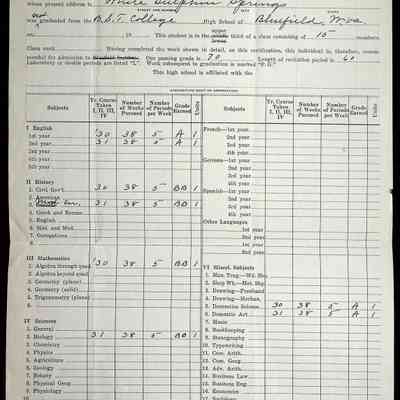 whose present address is White Sulphur Springs
not
was graduated from the B.S.T. College High School of Bluefield, W.va
on , 19 This student is in the upper middle lower third of a class consisting of 15 members.
Class work Having completed the work shown in detail, on this certification, this individual is, therefore, recom-
mended for Admission to One passing grade is 70 Length of recitation period is 60
Laboratory or double periods are listed "L". Work subsequent to graduation is marked "P. G."
This high school is affiliated with the
Subjects Yr. Course Taken I, II, III, IV Number of Weeks Pursued Number of Periods per Week Grade Earned Units
I English
1st year '30 38 5 A 1
2nd year 31 38 5 A 1
3rd year
4th year
II History
1. Civil Gov't. 30 38 5 BB 1
2. American
3. Mod. Eur. 31 38 5 BB 1
4. Greek and Roman
5. English
6. Med. and Mod.
7. Occupations
8.
III Mathematics
1. Algebra through quad. '30 38 5 BB 1
2. Algebra beyond quad.
3. Geometry (plane)
4. Geometry (solid)
5. Trigonometry (plane)
6.
IV Sciences
1. General
2. Biology 31 38 5 BB 1
3. Chemistry
4. Physics
5. Agriculture
6. Zoology
7. Botany
8. Physical Geog.
9. Physiology
10.
Subjects Yr. Course Taken I, II, III, IV Number of Weeks Pursued Number of Periods per Week Grade Earned Units
French—1st year
2nd year
3rd year
4th year
German—1st year
2nd year
3rd year
4th year
Spanish—1st year
2nd year
3rd year
4th year
Other Languages
1st year
2nd year
1st year
2nd year
VI Miscl. Subjects
1. Man. Trng.—Wd. Shp.
2. Shop Wk.—Met. Shp.
3. Drawing—Freehand
4. Drawing—Mechan.
5. Domestic Science 30 38 5 A 1
6. Domestic Art 31 38 5 A 1
7. Music
8. Bookkeeping
9. Stenography
10. Typewriting
11. Com. Arith.
12. Com. Geog.
13. Adv. Arith.
14. Business Law
15. Business Eng.
16. Economics
17. Sociology